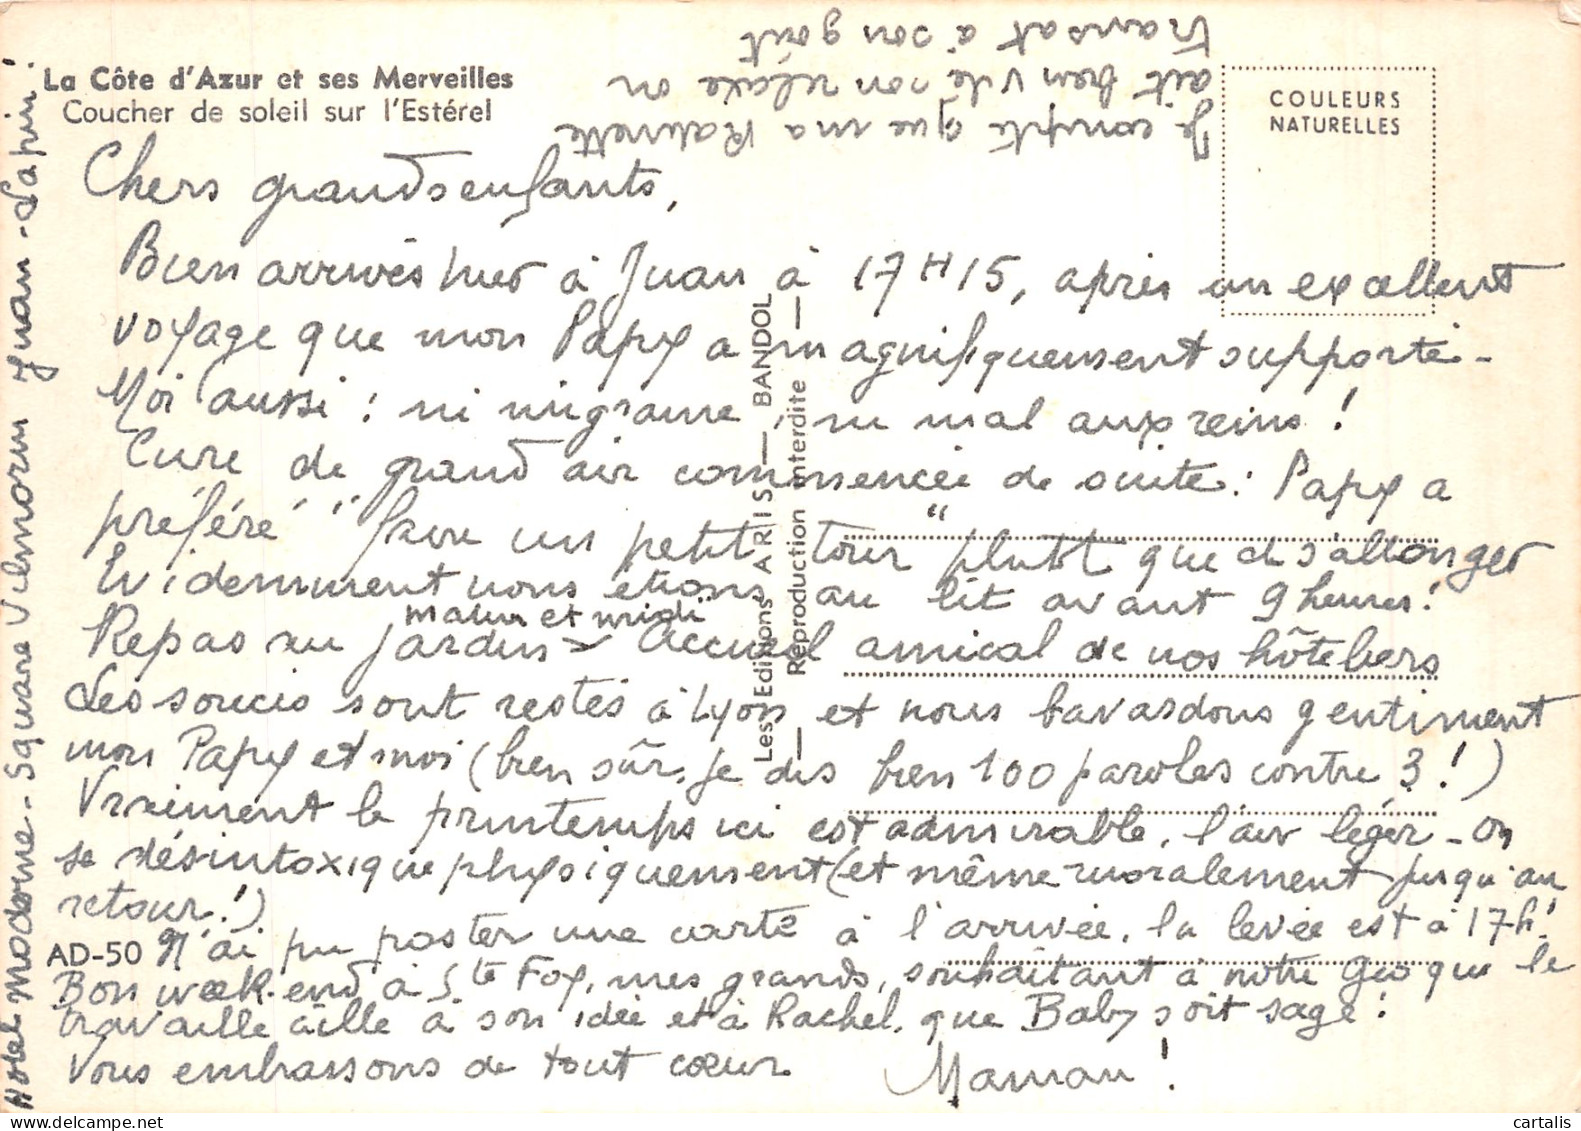 La Côte d'Azur et ses Merveilles
Coucher de soleil sur l'Estérel
COULEURS
NATURELLES
Chers grands enfants,
Bien arrivés hier à Juan à 17H15, après un excellent
voyage que mon Papy a magnifiquement supporté -
Moi aussi : ni migraine, ni mal aux reins !
Cure de grand air commencée de suite : Papy a
préféré "faire un petit tour" plutôt que de s'allonger
Evidemment nous étions au lit avant 9 heures !
matin et midi
Repas au jardin - Accueil amical de nos hôteliers
Les soucis sont restés à Lyon et nous bavardons gentiment
mon Papy et moi (bien sûr, je dis bien 100 paroles contre 3 !)
Vraiment le printemps ici est admirable, l'air léger - on
se désintoxique physiquement (et même moralement jusqu'au
retour !)
N'ai pu poster une carte à l'arrivée, la levée est à 17h !
Bon week-end à Ste Foy, mes grands, souhaitant à notre Géo que le
travail aille à son idée et à Rachel, que Baby soit sage !
Vous embrassons de tout cœur
Maman !
Je compte que ma
ait bien vite son relaxe on
transat à son goût
Hôtel Moderne - Square Vilmorin Juan-Lapin !
AD-50
Les Editions ARIS — BANDOL
— Reproduction interdite —
cartalis